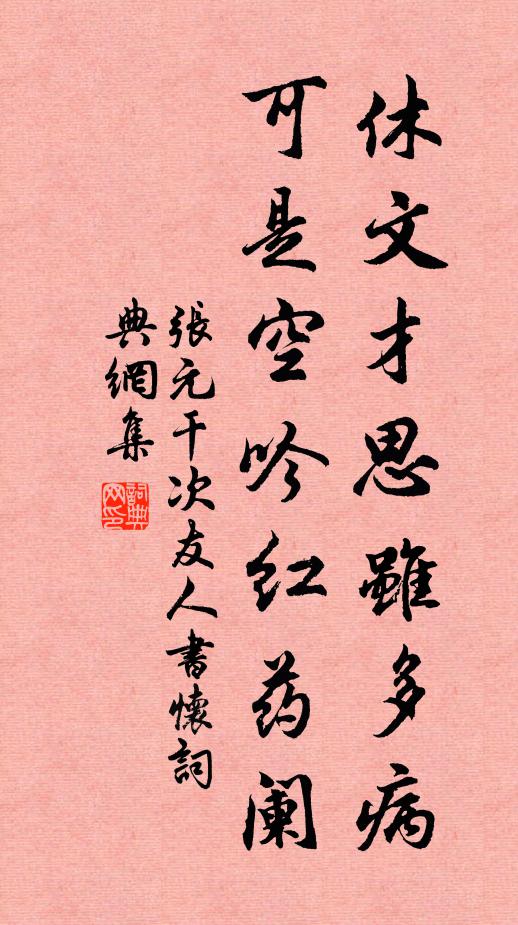 休文才思雖多病
可是空吟红药阑
張元干次友人書懷詞
典網集
詞典
网印